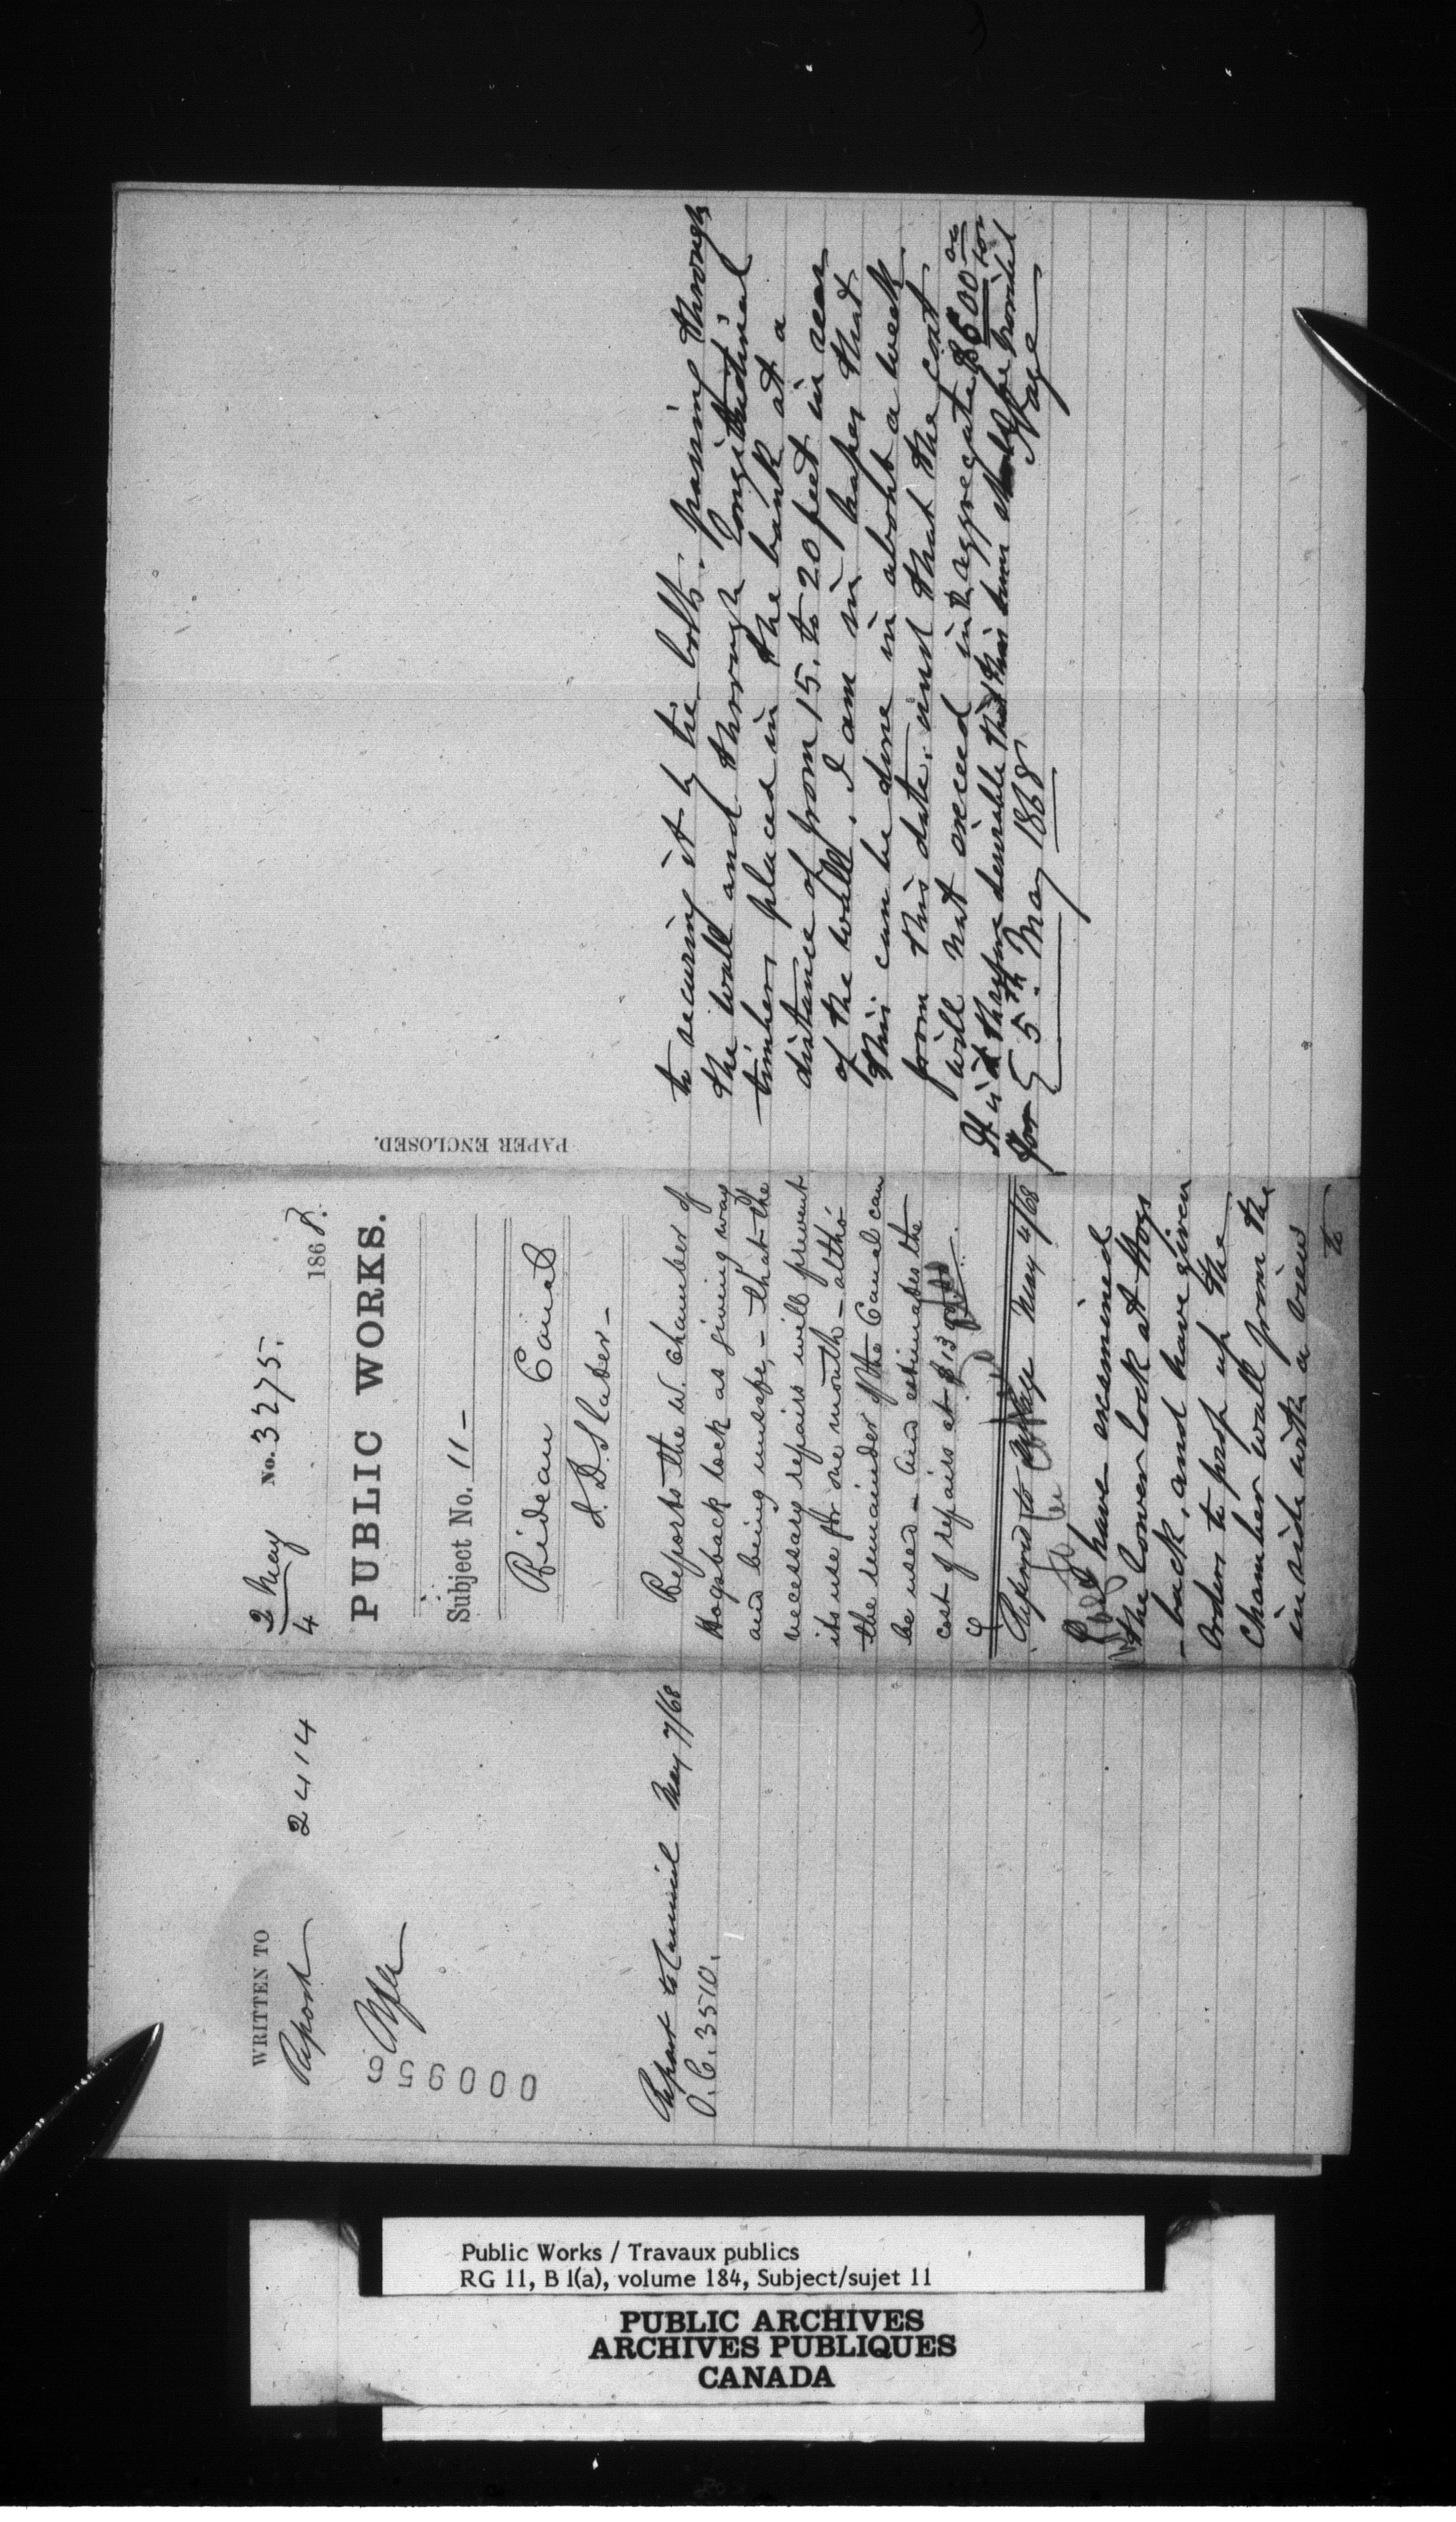 WRITTEN TO
Report
2414
000956
Report to Council May 7/68
O.C. 3510.
2 May
4
No. 3275.
1868.
PUBLIC WORKS.
Subject No. 11 -
Rideau Canal
J. D. Slater -
Reports the W. chamber of
Hogsback lock as giving way
and being unsafe, - that the
necessary repairs will prevent
its use for one month - altho'
the remainder of the Canal can
be used - and estimates the
cost of repairs at $13
Referred to May 4/68
I have examined
the lower lock at Hogs
-back, and have given
orders to prop up the
chamber wall from the
inside with a view
to
PAPER ENCLOSED.
to securing it by tie-bolts, passing through
the wall and through longitudinal
timbers placed in the bank at a
distance of from 15. to 20 feet in rear
of the wall. I am in hopes that
this can be done in about a week
from this date, and that the cost
will not exceed in the aggregate $600
It is therefore desirable that this sum should be provided
for
5th May 1868
Page
Public Works / Travaux publics
RG 11, B 1(a), volume 184, Subject/sujet 11
PUBLIC ARCHIVES
ARCHIVES PUBLIQUES
CANADA